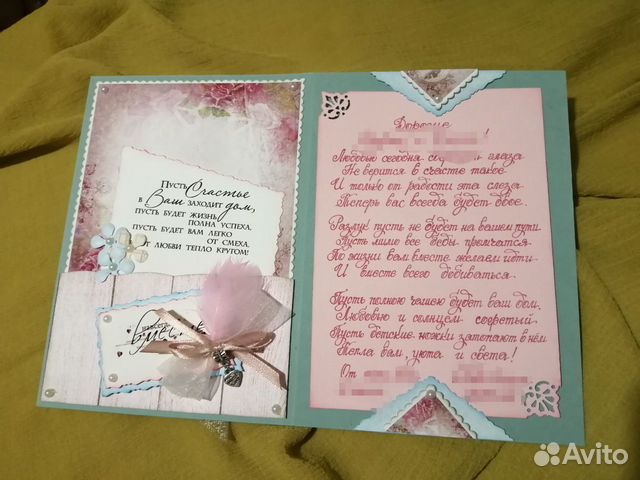 Пусть Счастье
в Ваш заходит дом,
пусть будет жизнь
полна успеха.
пусть будет вам легко
от смеха.
От любви тепло кругом!
вместе
Дорогие
!
Любовью сегодня глаза
Не верится в счастье такое
И только от радости эта слеза
Теперь вас всегда будет двое.
Разлук пусть не будет на вашем пути
Пусть мимо все беды промчатся
По жизни вам вместе желаем идти
И вместе всего добиваться.
Пусть полною чашею будет ваш дом,
Любовью и солнцем согретый
Пусть детские ножки затопают в нём
Тепла вам, уюта и света!
От
Avito